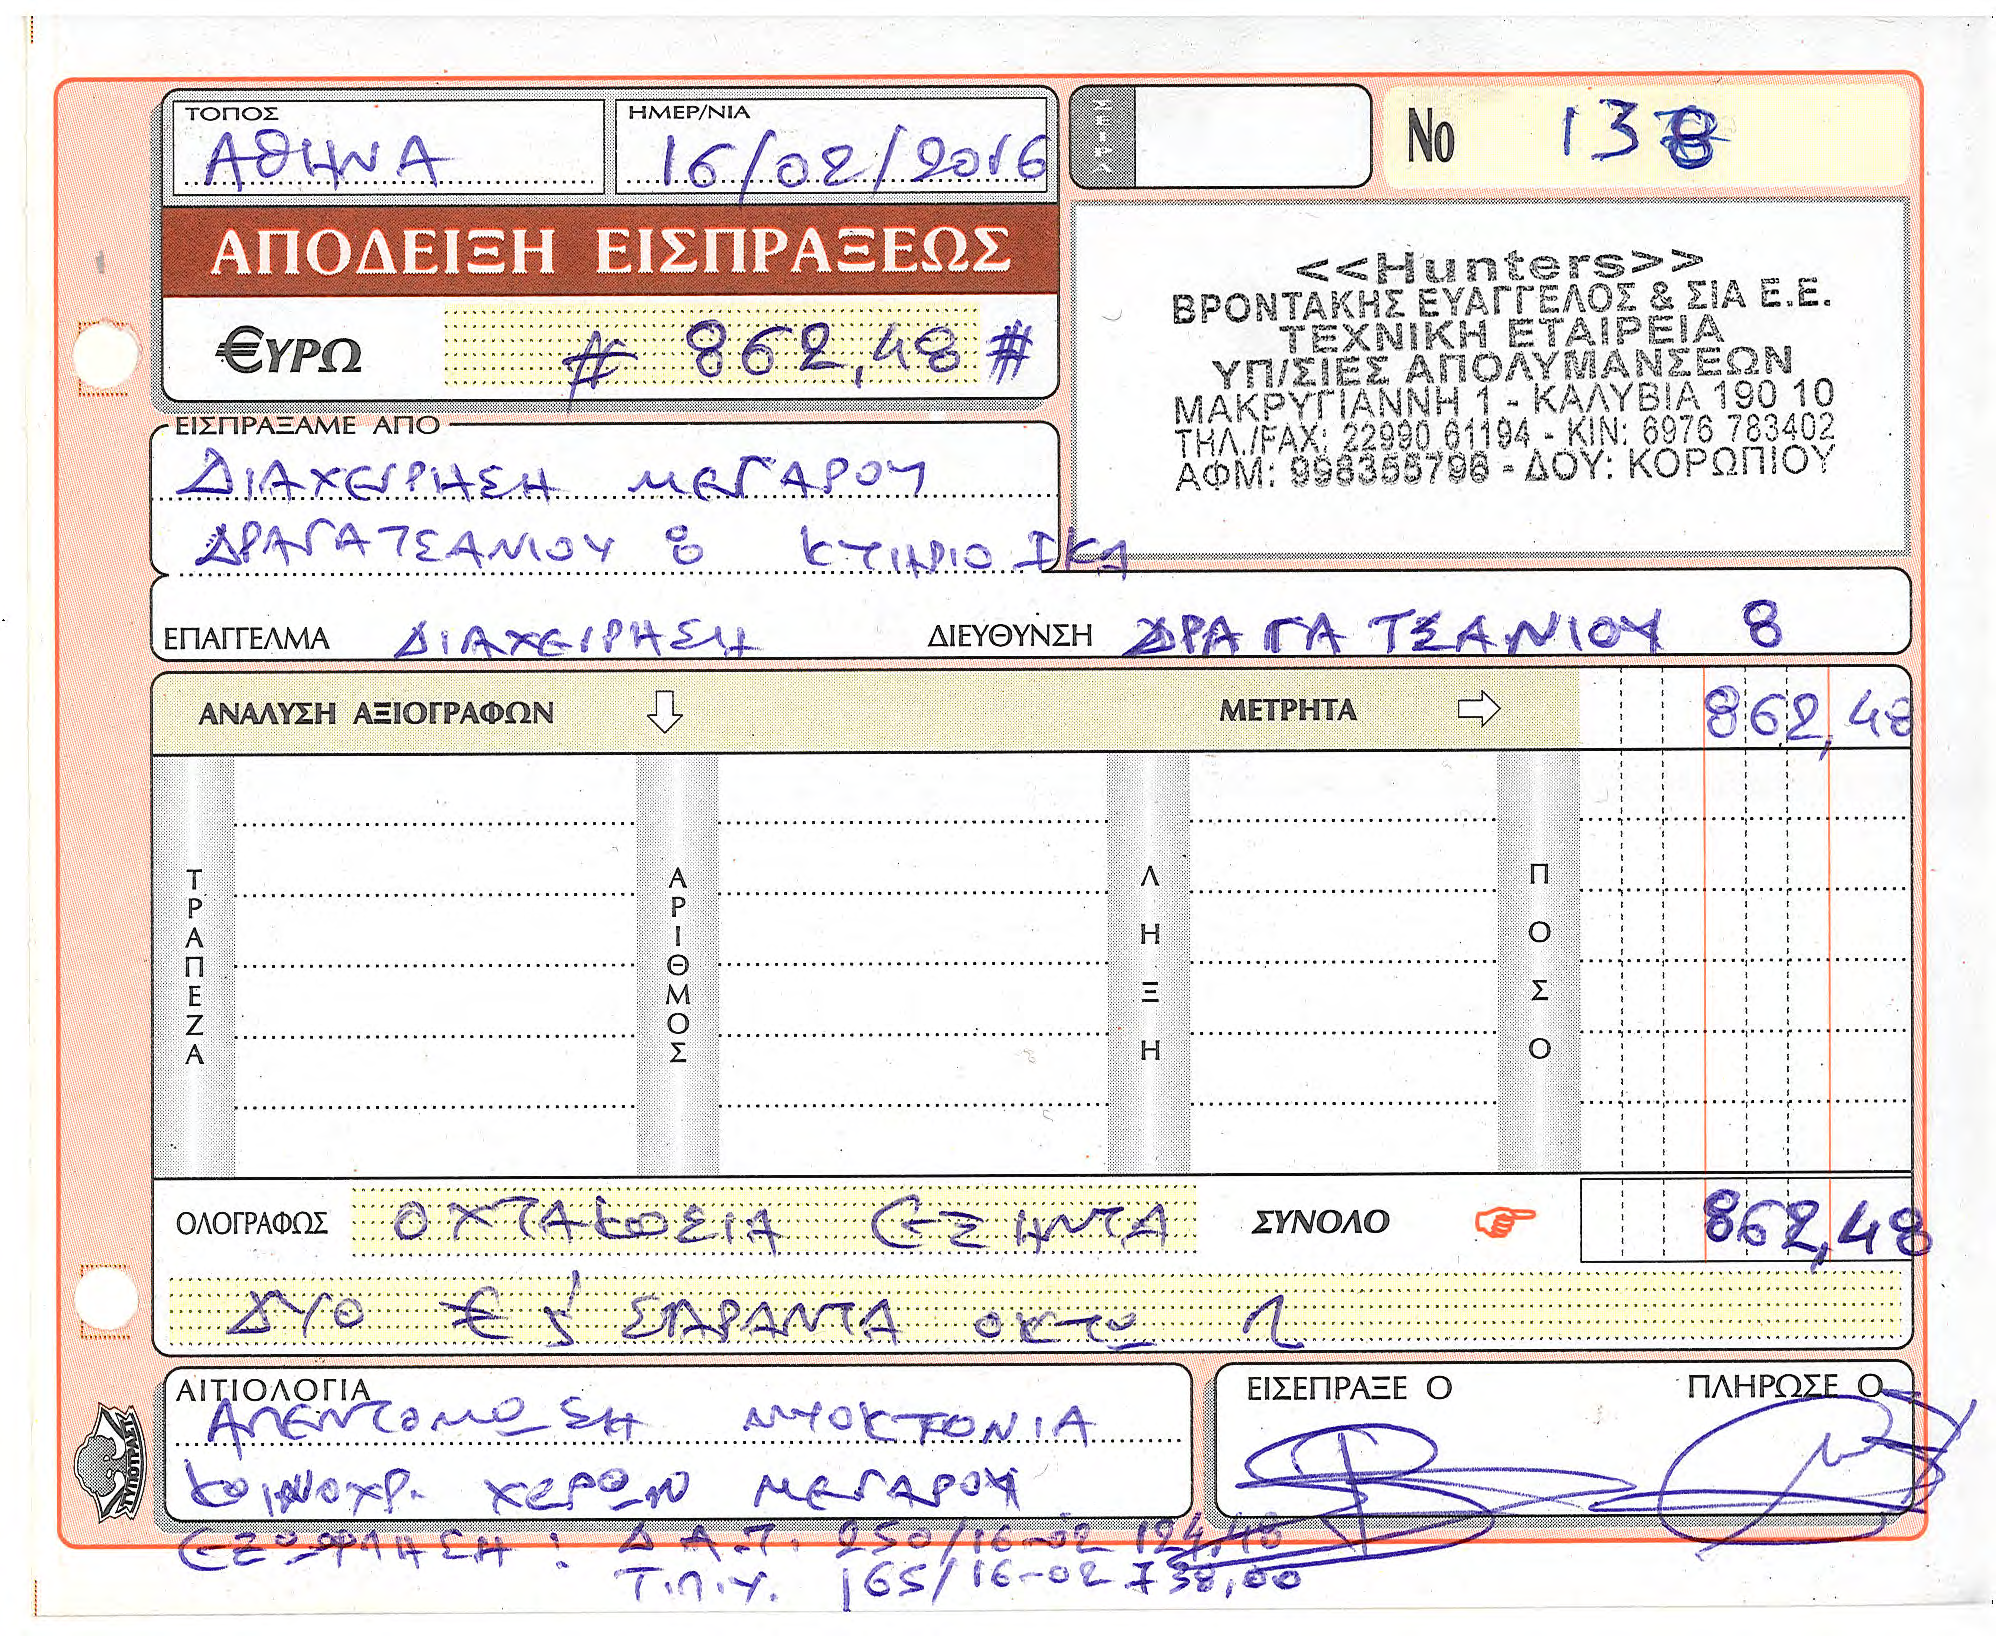 ΤΟΠΟΣ
ΑΘΗΝΑ
ΗΜΕΡ/ΝΙΑ
16/02/2016
ΣΕΙΡΑ
No 138
ΑΠΟΔΕΙΞΗ ΕΙΣΠΡΑΞΕΩΣ
€ΥΡΩ # 862,48 #
<<Hunters>>
ΒΡΟΝΤΑΚΗΣ ΕΥΑΓΓΕΛΟΣ & ΣΙΑ Ε.Ε.
ΤΕΧΝΙΚΗ ΕΤΑΙΡΕΙΑ
ΥΠ/ΣΙΕΣ ΑΠΟΛΥΜΑΝΣΕΩΝ
ΜΑΚΡΥΓΙΑΝΝΗ 1 - ΚΑΛΥΒΙΑ 190 10
ΤΗΛ./FAX: 22990 61194 - ΚΙΝ: 6976 783402
ΑΦΜ: 998355798 - ΔΟΥ: ΚΟΡΩΠΙΟΥ
ΕΙΣΠΡΑΞΑΜΕ ΑΠΟ
ΔΙΑΧΕΙΡΗΣΗ ΜΕΓΑΡΟΥ
ΔΡΑΓΑΤΣΑΝΙΟΥ 8 ΚΤΙΡΙΟ ΙΚΑ
ΕΠΑΓΓΕΛΜΑ ΔΙΑΧΕΙΡΗΣΗ ΔΙΕΥΘΥΝΣΗ ΔΡΑΓΑΤΣΑΝΙΟΥ 8
ΑΝΑΛΥΣΗ ΑΞΙΟΓΡΑΦΩΝ ΜΕΤΡΗΤΑ 862,48
ΤΡΑΠΕΖΑ ΑΡΙΘΜΟΣ ΛΗΞΗ ΠΟΣΟ
ΟΛΟΓΡΑΦΩΣ ΟΧΤΑΚΟΣΙΑ ΕΞΗΝΤΑ ΣΥΝΟΛΟ 862,48
ΔΥΟ € ΣΑΡΑΝΤΑ ΟΚΤΩ
ΑΙΤΙΟΛΟΓΙΑ
ΑΠΕΝΤΟΜΩΣΗ ΜΥΟΚΤΟΝΙΑ
ΚΟΙΝΟΧΡ. ΧΩΡΩΝ ΜΕΓΑΡΟΥ
ΕΞΩΦΛΗΣΗ : Δ.Α.Τ. 250/16-02 124,48
Τ.Π.Υ. 165/16-02 738,00
ΕΙΣΕΠΡΑΞΕ Ο ΠΛΗΡΩΣΕ Ο
ΤΥΠΟΤΡΑΣΤ